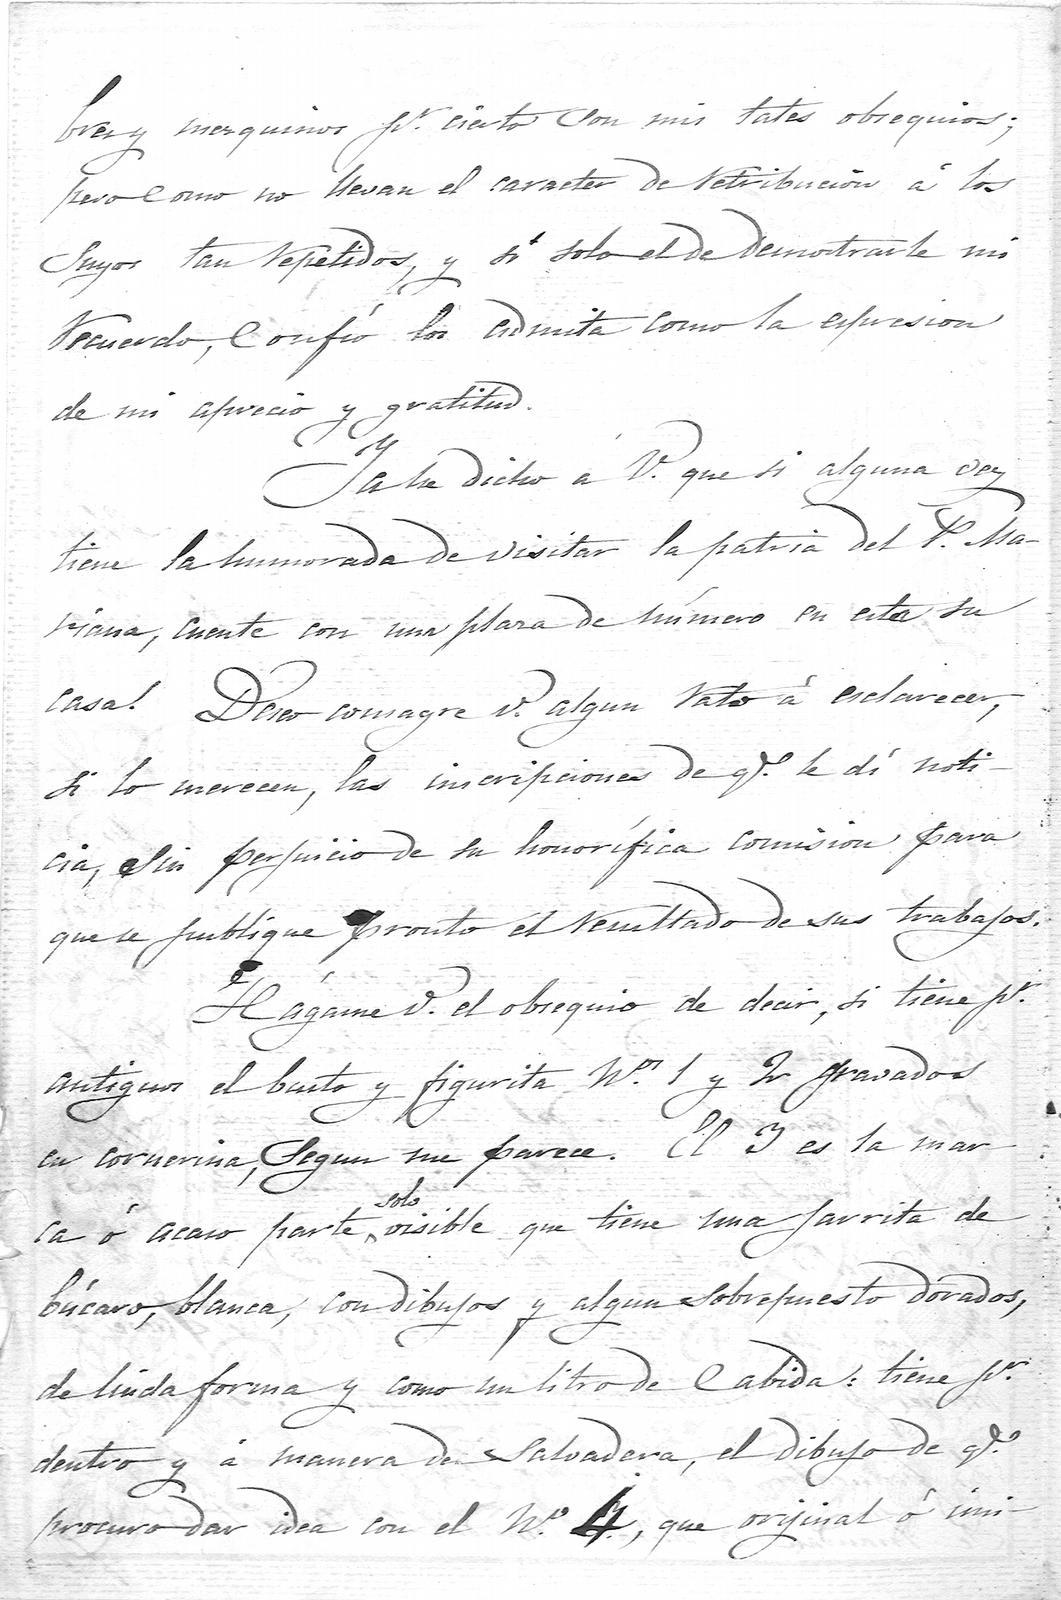 bres y mezquinos pr. cierto son mis tales obsequios;
pero como no llevan el caracter de retribucion á los
suyos tan repetidos, y sí solo el de demostrarle mi
recuerdo, confío los admita como la espresion
de mi aprecio y gratitud.
Ya he dicho á V. que si alguna vez
tiene la humorada de visitar la patria del P. Ma-
riana, cuente con una plaza de número en esta su
casa! Deseo consagre V. algun rato á esclarecer,
si lo merecen, las inscripciones de qe. le dí noti-
cia, sin perjuicio de su honorífica comision para
que se publique pronto el resultado de sus trabajos.
Hágame V. el obsequio de decir, si tiene pr.
antiguos el busto y figurita Nos. 1 y 2 gravados
en cornerina, segun me parece. El 3 es la mar
ca ó acaso parte solo visible que tiene una jarrita de
búcaro, blanca, con dibujos y algun sobrepuesto dorados,
de linda forma y como un litro de cabida: tiene pr.
dentro y á manera de salvadera, el dibujo de qe.
procuro dar idea con el No. 4, que orijinal ó imi-